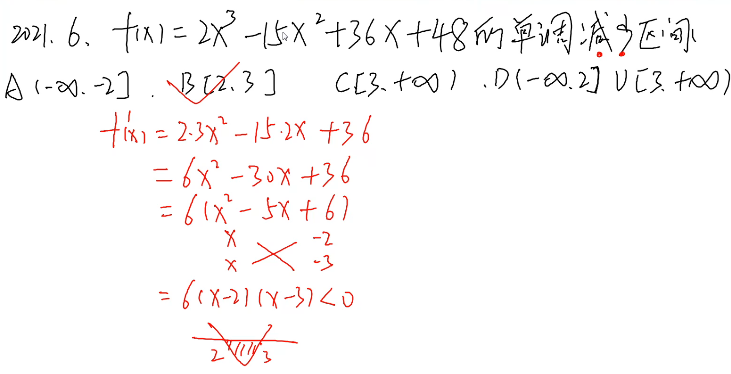 2021.6. f(x)=2x³-15x²+36x+48的单调减少区间
A(-∞.-2]. B[2.3] C[3.+∞). D(-∞.2]∪[3.+∞)
f'(x)=2·3x²-15·2x+36
=6x²-30x+36
=6(x²-5x+6)
x -2
x -3
=6(x-2)(x-3)<0
2 3